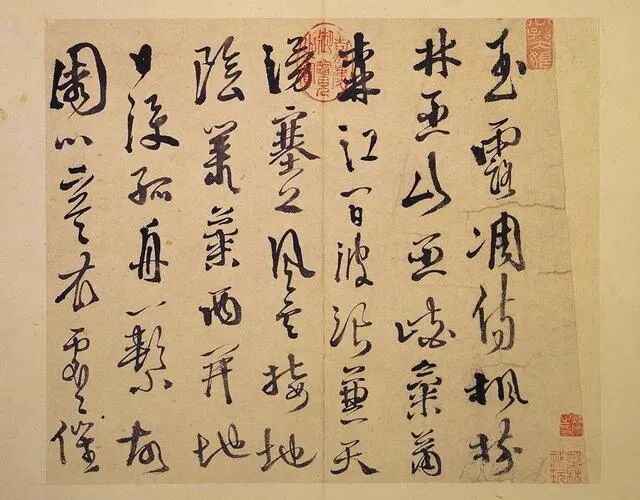 玉露凋傷楓樹
林巫山巫峽氣蕭
森江間波浪兼天
湧塞上風雲接地
陰叢菊兩開他
日淚孤舟一繫故
園心寒衣處々催